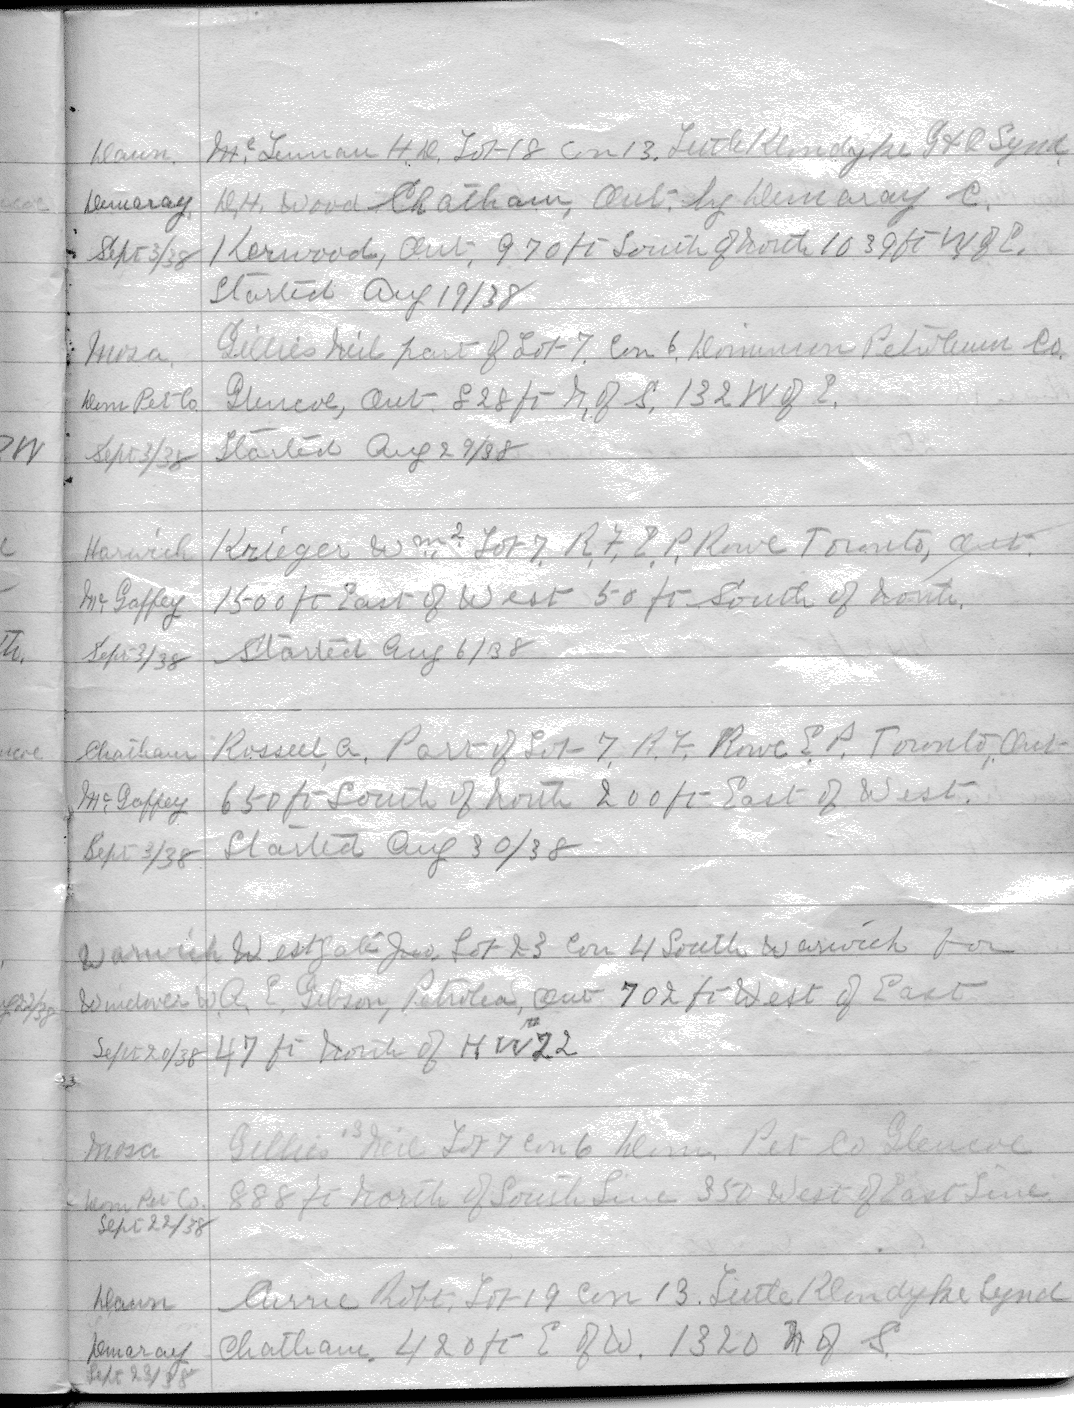 Dawn. McLennan H.D. Lot 18 Con 13. Little Klondyke G & O Synd.
Demaray. D.H. Wood Chatham, Ont. by Demaray C.
Sept 3/38 Kerwood, Ont, 970 ft South of North 1039 ft W of E.
Started Aug 19/38
Mosa. Gillies Neil part of Lot 7. Con 6. Dominion Petroleum Co.
Dom Pet Co Glencoe, Ont. 828 ft N. of S. 132 W of E.
Sept 3/38 Started Aug 29/38
Harwich Krieger Wm 2 Lot 7, R.F. E.P. Rowe Toronto, Ont.
McGaffey 1500 ft East of West 50 ft South of North.
Sept 3/38 Started Aug 6/38
Chatham Russell, A. Part of Lot 7. R.F. Rowe E.P. Toronto, Ont
McGaffey 650 ft South of North 200 ft East of West.
Sept 3/38 Started Aug 30/38
Warwick Westgate Jno. Lot 23 Con 4 South Warwick for
Windover W. A. E. Gibson, Petrolea, Ont 702 ft West of East
Sept 20/38 47 ft North of HW 22
Mosa Gillies #3 Neil Lot 7 Con 6 Dom. Pet Co Glencoe
Dom Pet Co. 888 ft North of South Line 350 West of East Line
Sept 22/38
Dawn Currie Robt. Lot 19 Con 13. Little Klondyke Synd
Demaray Chatham. 420 ft E of W. 1320 N of S.
Sept 23/38